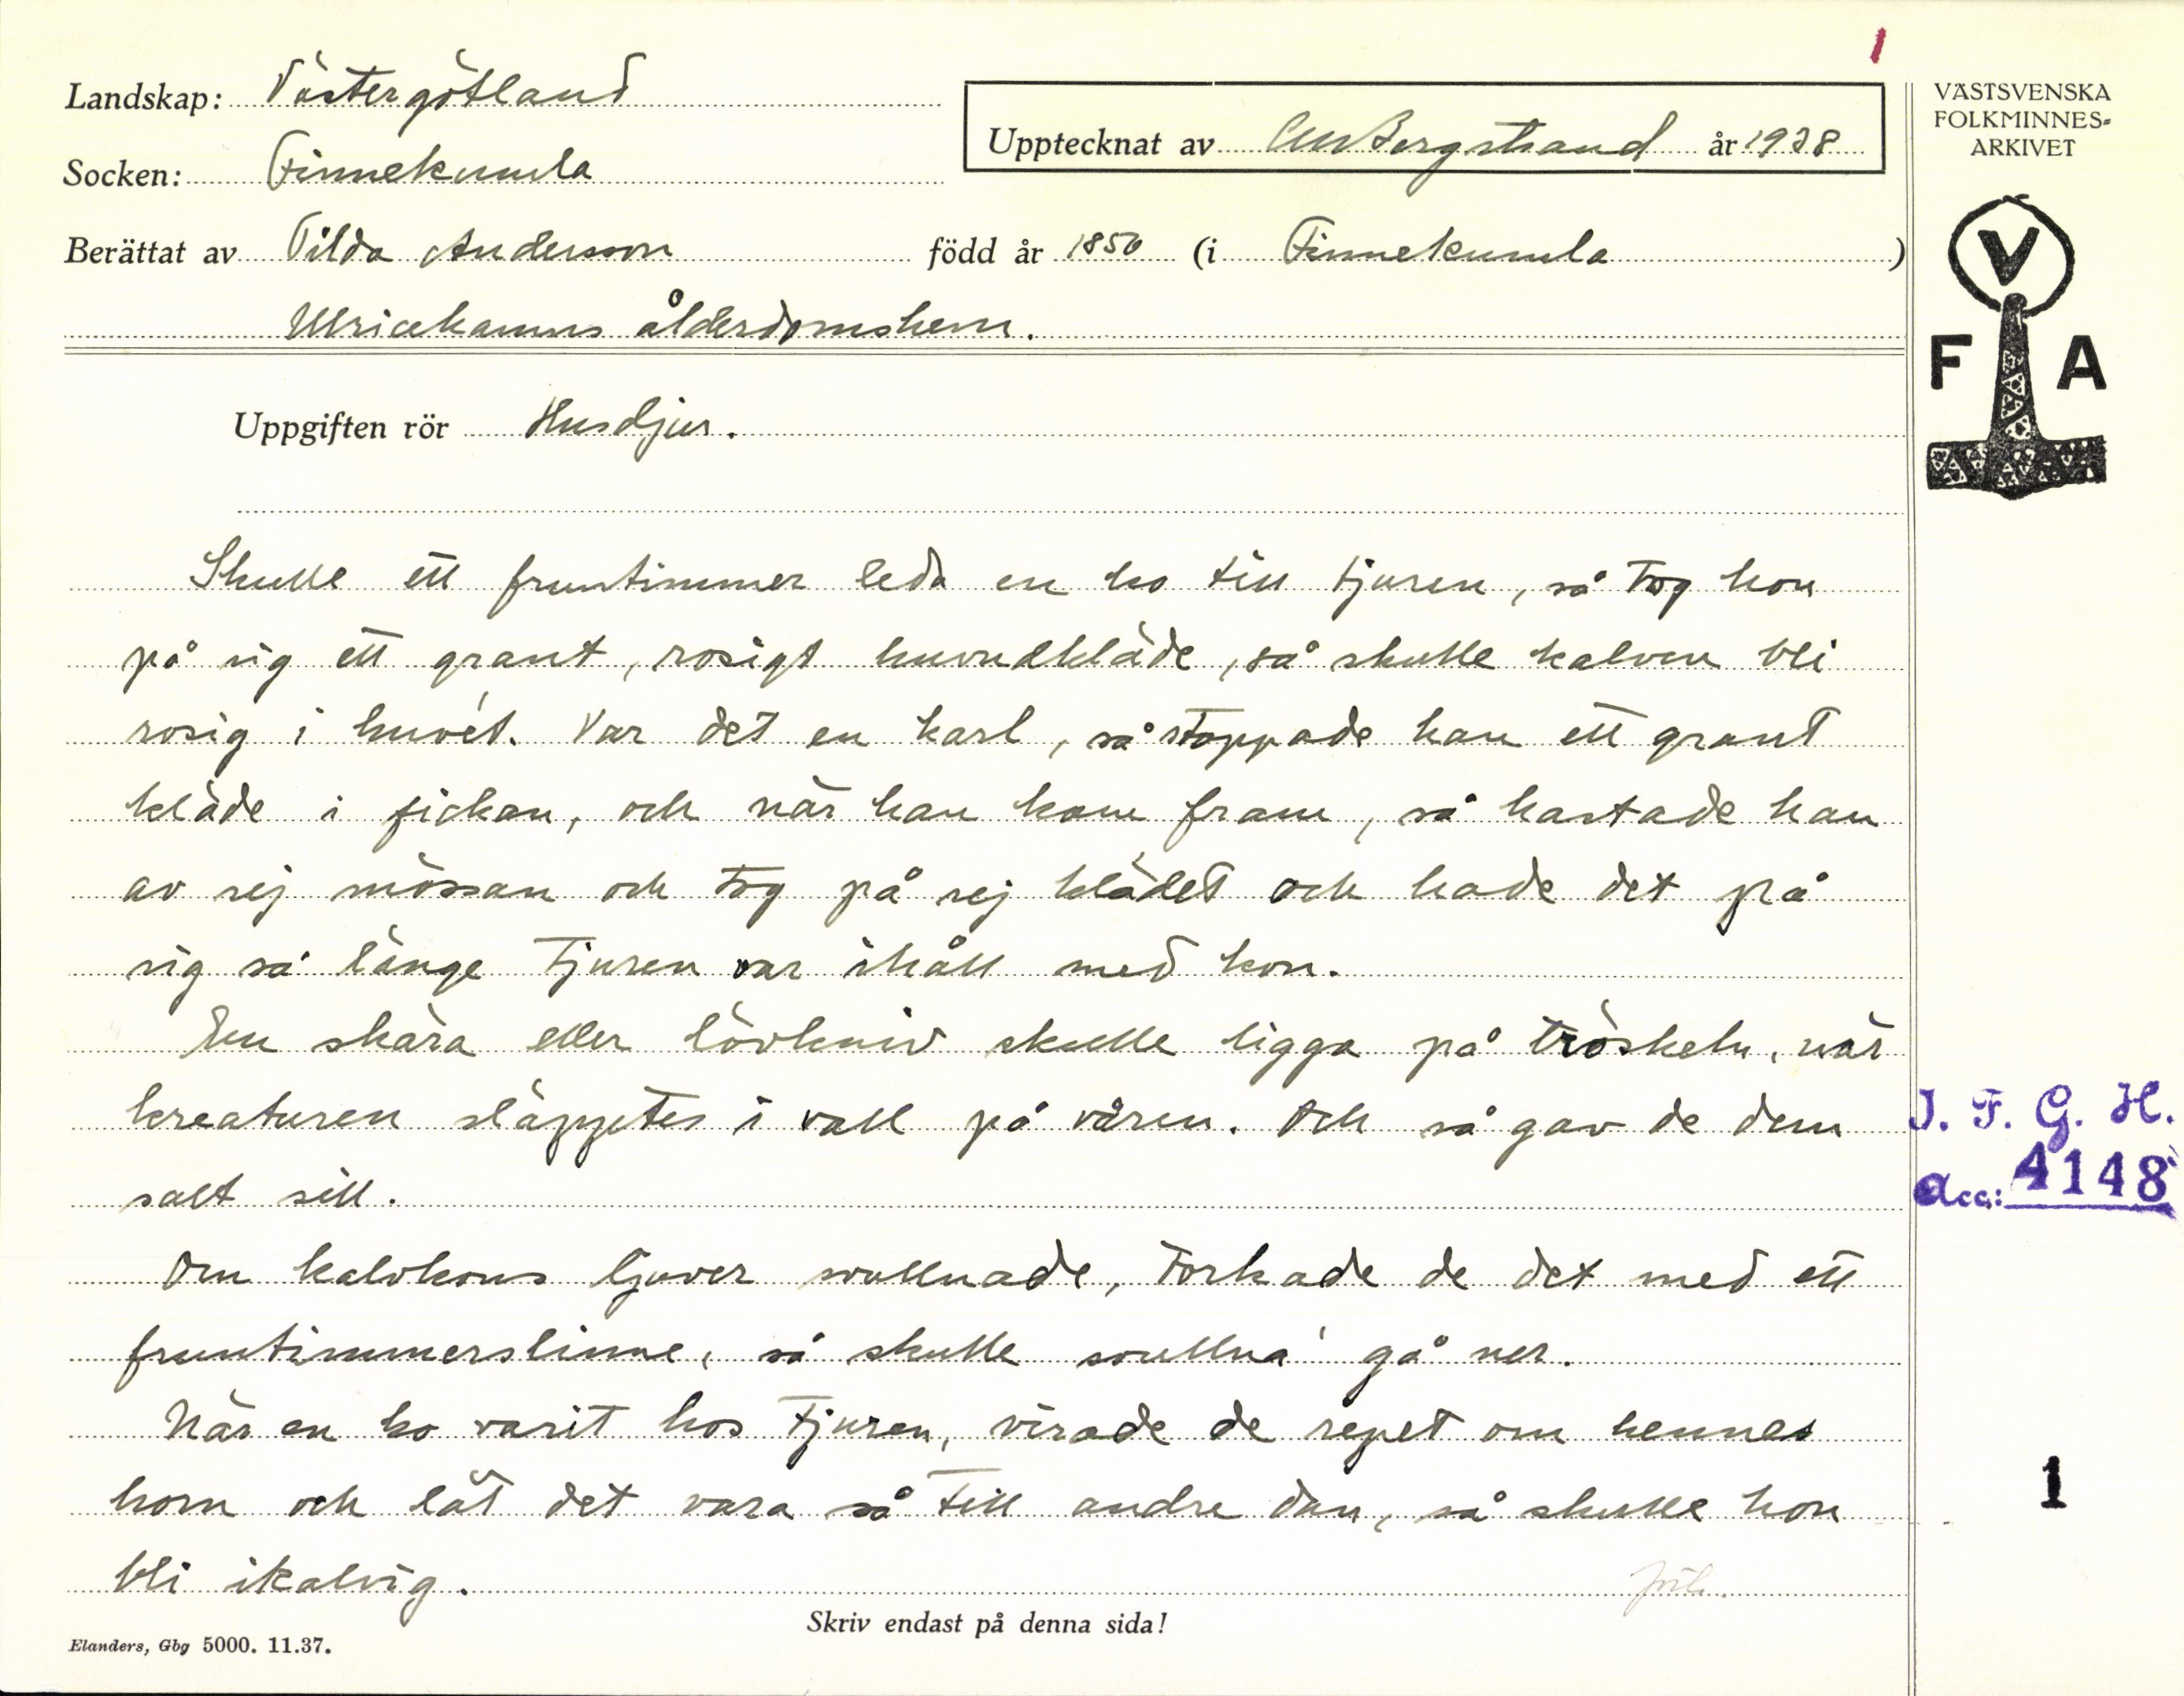 1
Landskap: Västergötland
Upptecknat av CM Bergstrand år 1938
Socken: Finnekumla
Berättat av Tilda Andersson född år 1850 (i Finnekumla)
Ulricehamns ålderdomshem.
VÄSTSVENSKA
FOLKMINNES-
ARKIVET
V
F A
Uppgiften rör Husdjur.
Skulle ett fruntimmer leda en ko till tjuren, så tog hon
på sig ett grant, rosigt huvudkläde, så skulle kalven bli
rosig i huvét. Var det en karl, så stoppade han ett grant
kläde i fickan, och när han kom fram, så kastade han
av sej mössan och tog på sej klädet och hade det på
sig så länge tjuren var ihåll med kon.
En skära eller lövkniv skulle ligga på tröskeln, när
kreaturen släpptes i vall på våren. Och så gav de dem
salt sill.
Om kalvkons ljuver svullnade, torkade de det med ett
fruntimmerslinne, så skulle svullna' gå ner.
När en ko varit hos tjuren, virade de repet om hennes
horn och lät det vara så till andre dan, så skulle hon
bli ikalvig.
I. F. G. H.
Acc: 4148
1
Skriv endast på denna sida!
Elanders, Gbg 5000. 11.37.